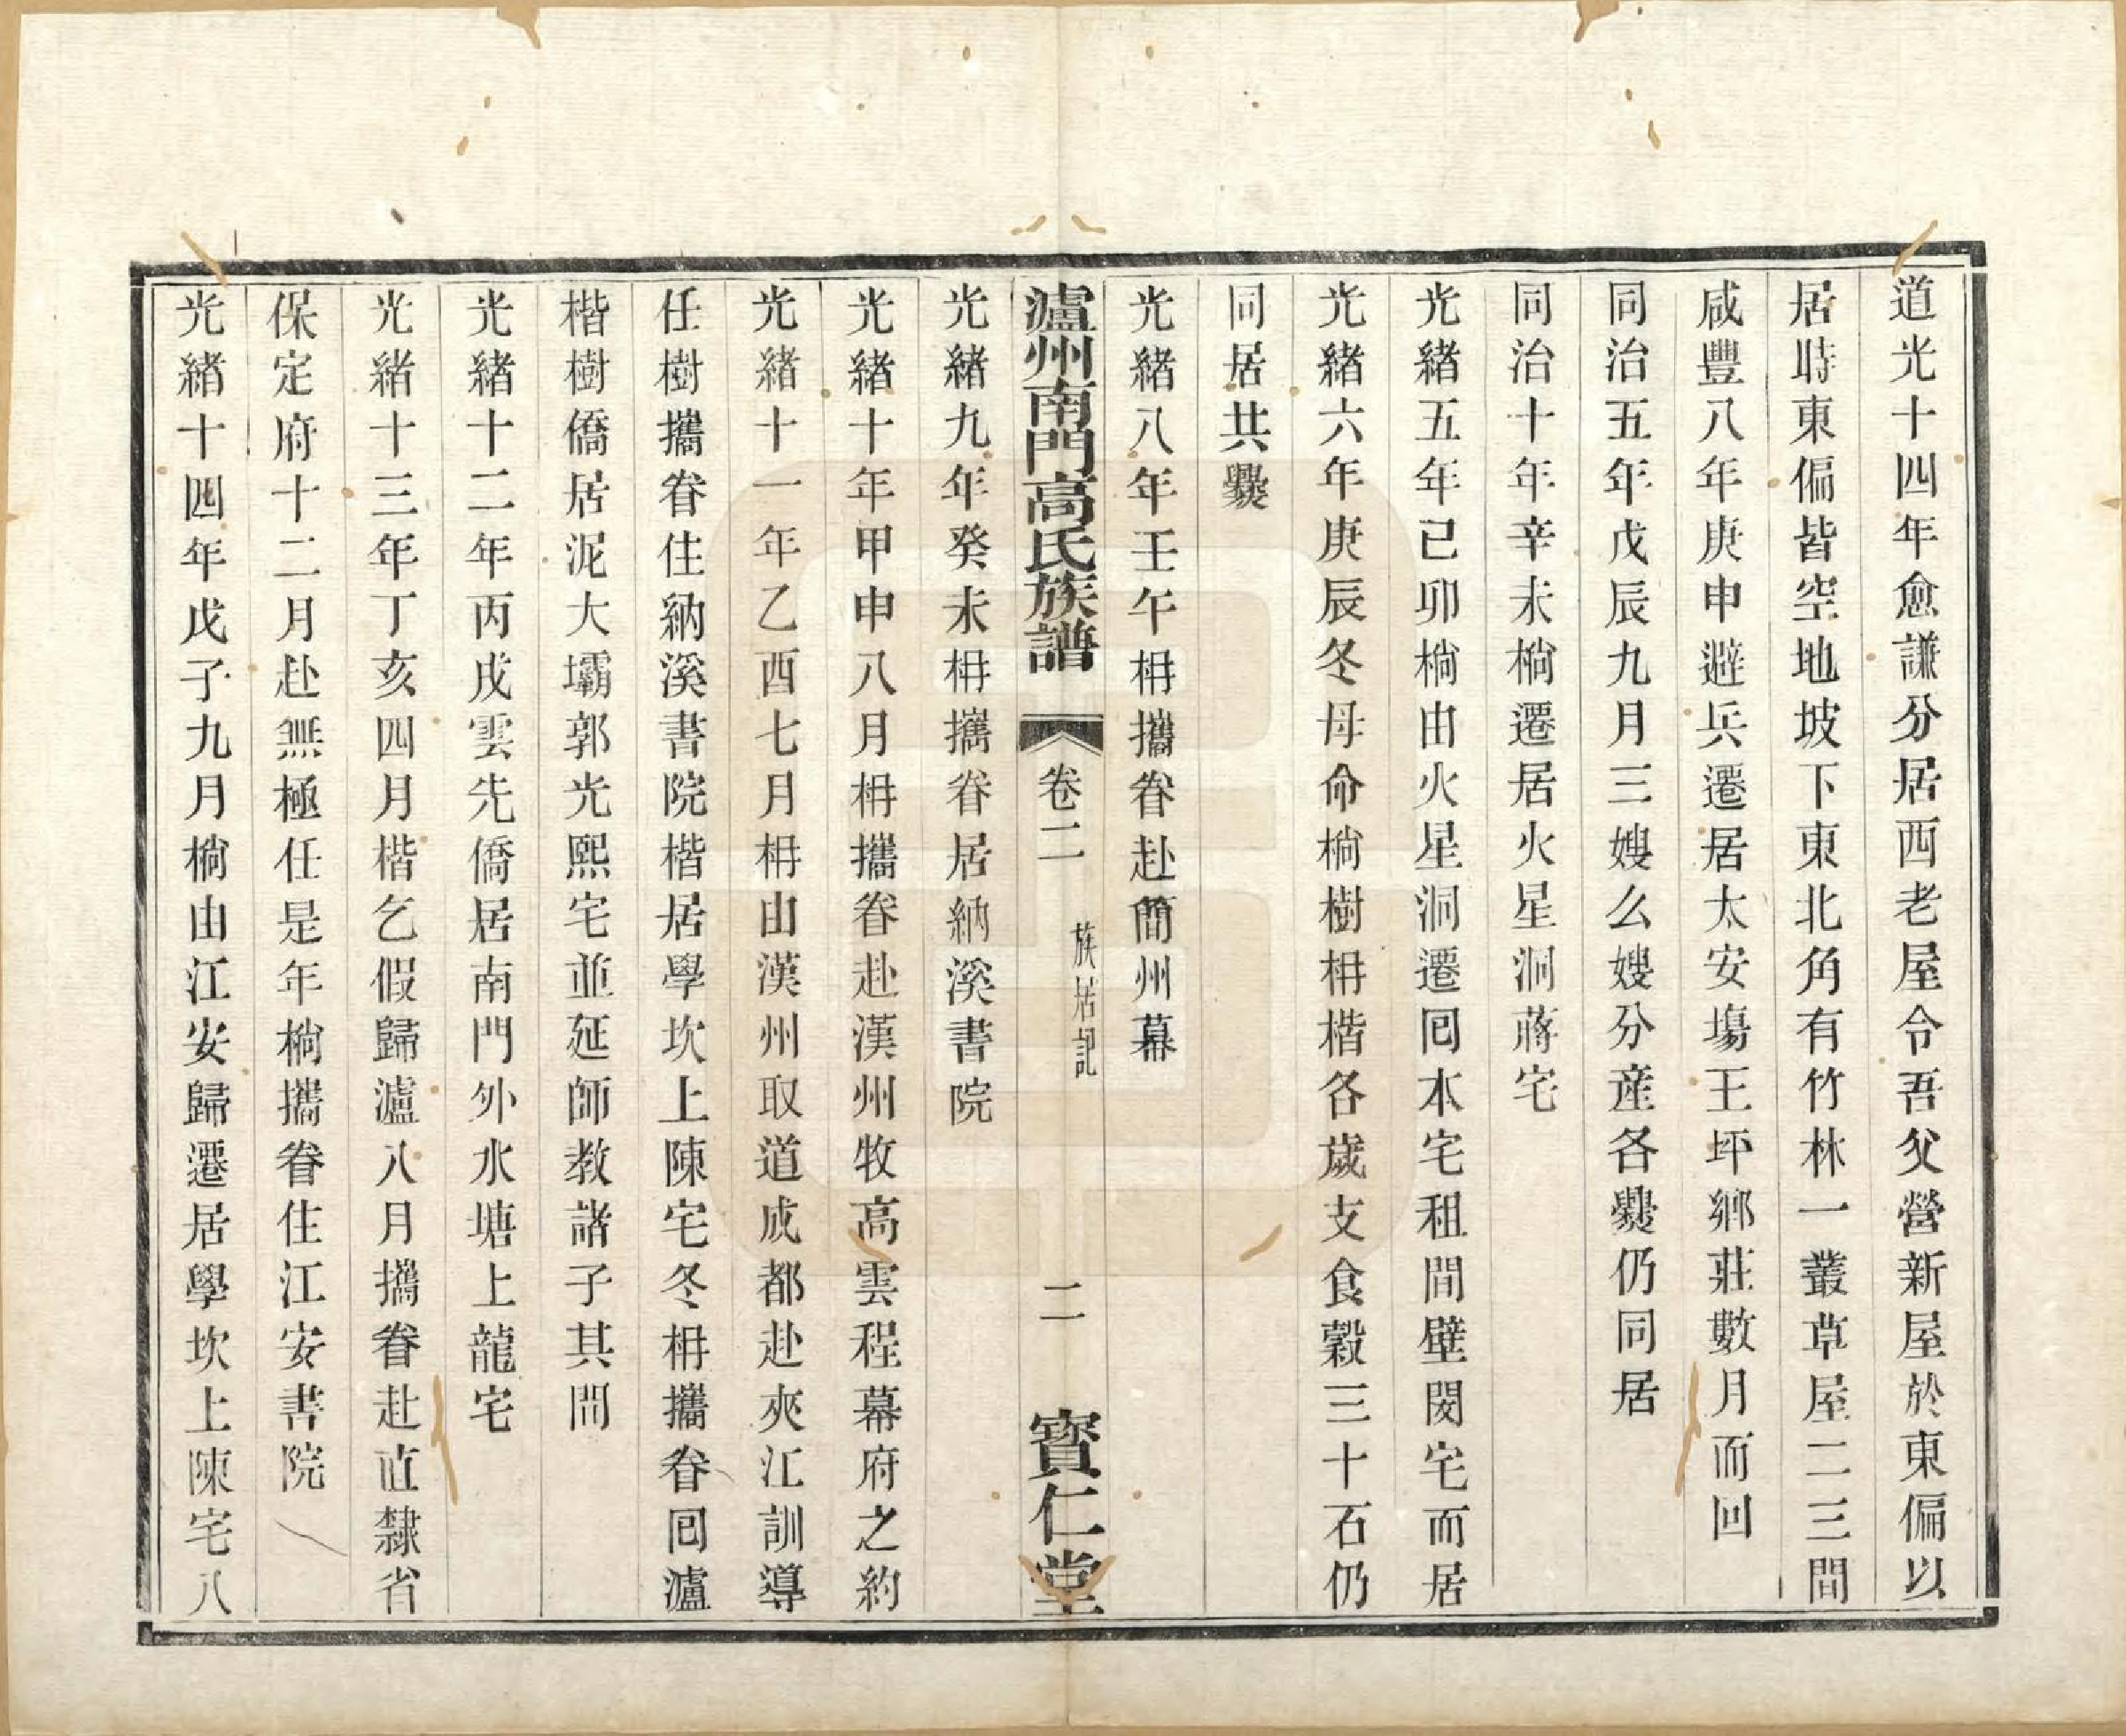 道光十四年愈謙分居西老屋令吾父營新屋於東偏以
居時東偏皆空地坡下東北角有竹林一叢草屋二三間
咸豐八年庚申避兵遷居太安塲王坪鄉莊數月而回
同治五年戊辰九月三嫂么嫂分産各爨仍同居
同治十年辛未楠遷居火星洞蔣宅
光緒五年己卯楠由火星洞遷囘本宅租間壁閔宅而居
光緒六年庚辰冬母命楠樹枬楷各歲支食穀三十石仍
同居共爨
光緒八年壬午枬攜眷赴簡州幕
瀘州南門高氏族譜 卷二 族居記 二 寶仁堂
光緒九年癸未枬攜眷居納溪書院
光緒十年甲申八月枬攜眷赴漢州牧高雲程幕府之約
光緒十一年乙酉七月枬由漢州取道成都赴夾江訓導
任樹攜眷住納溪書院楷居學坎上陳宅冬枬攜眷囘瀘
楷樹僑居泥大壩郭光熙宅並延師教諸子其間
光緒十二年丙戌雲先僑居南門外水塘上龍宅
光緒十三年丁亥四月楷乞假歸瀘八月攜眷赴直隸省
保定府十二月赴無極任是年楠攜眷住江安書院
光緒十四年戊子九月楠由江安歸遷居學坎上陳宅八